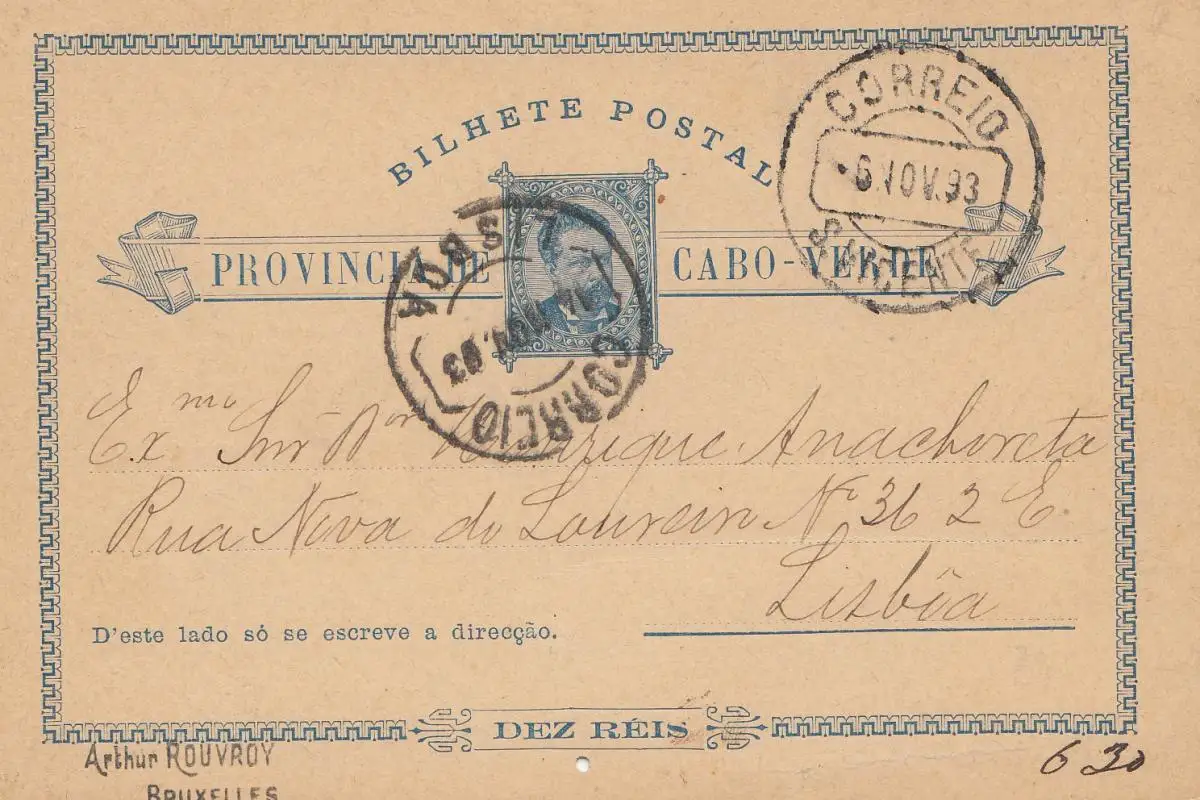 BILHETE POSTAL
PROVINCIA DE CABO-VERDE
CORREIO
6.NOV.93
S.VICENTE
LISBOA
NOV.93
CORREIO
Exmo Snr Dor Henrique Anachoreta
Rua Nova do Loureiro No 36 2 E.
Lisbôa
D'este lado só se escreve a direcção.
DEZ RÉIS
Arthur ROUVROY
BRUXELLES
6 30